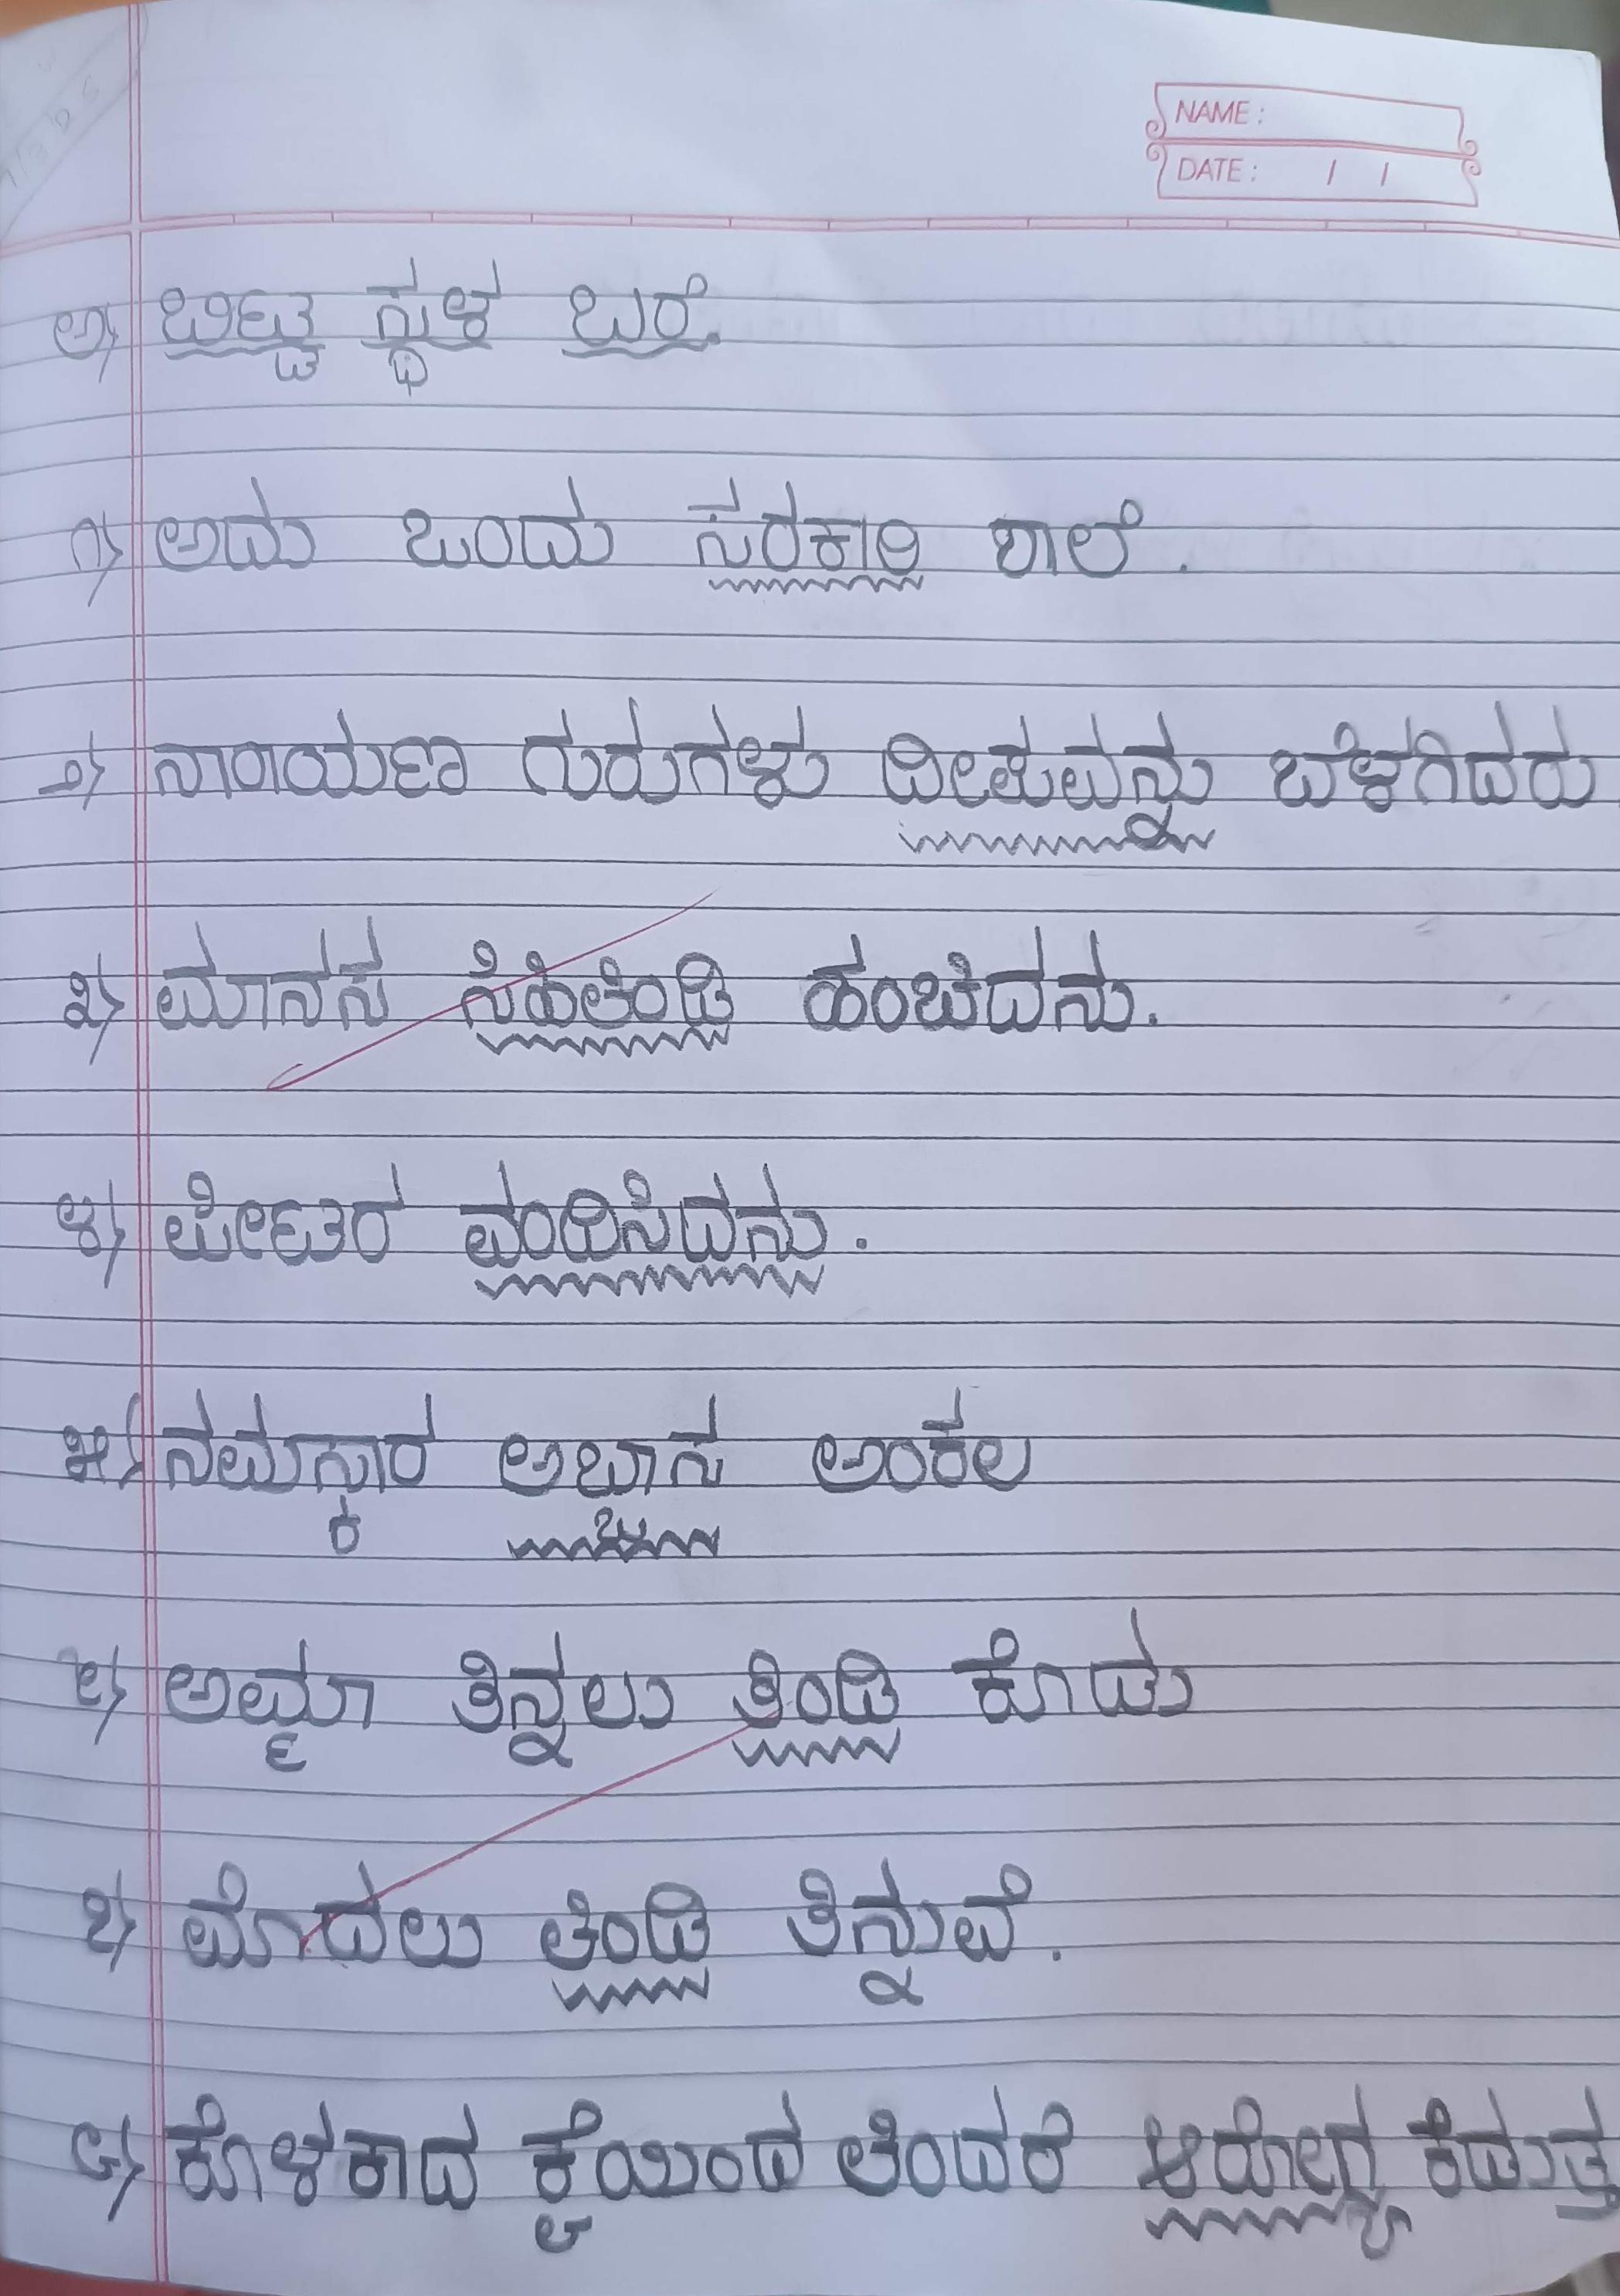 NAME :
DATE : / /
ಅ) ಬಿಟ್ಟ ಸ್ಥಳ ಬರೆ.
೧) ಅದು ಒಂದು ಸರಕಾರಿ ಶಾಲೆ .
೨) ನಾರಾಯಣ ಗುರುಗಳು ದೀಪವನ್ನು ಬೆಳಗಿದರು
೩) ಮಾನಸ ಸಿಹಿತಿಂಡಿ ಹಂಚಿದನು.
೪) ಪೀಟರ ವಂದಿಸಿದನು .
೫) ನಮಸ್ಕಾರ ಅಬ್ಬಾಸ ಅಂಕಲ
೬) ಅಮ್ಮಾ ತಿನ್ನಲು ತಿಂಡಿ ಕೊಡು
೭) ಮೊದಲು ತಿಂಡಿ ತಿನ್ನುವೆ .
೮) ಕೊಳಕಾದ ಕೈಯಿಂದ ತಿಂದರೆ ಆರೋಗ್ಯ ಕೆಡುತ್ತ